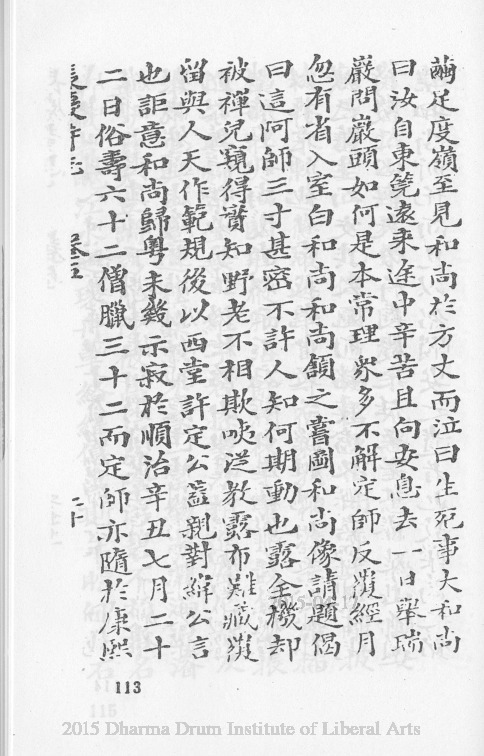 繭足度嶺至見和尚於方丈而泣曰生死事大和尚
曰汝自東筦遠来途中辛苦且向安息去一日舉瑞
巖問巖頭如何是本常理眾多不解定師反覆經月
忽有省入室白和尚和尚頷之嘗圖和尚像請題偈
曰這阿師三寸甚密不許人知何期動也露全機却
被禪兒窺得實知野老不相欺咦從教露布難藏
留與人天作範規後以西堂許定公葢親對緣公言
也詎意和尚歸粤未幾示寂於順治辛丑七月二十
二日俗壽六十二僧臘三十二而定師亦隨於康熙
長慶 卷五 二十
113
2015 Dharma Drum Institute of Liberal Arts